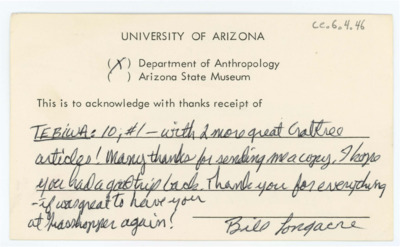 cc.6.4.46
UNIVERSITY OF ARIZONA
(X) Department of Anthropology
( ) Arizona State Museum
This is to acknowledge with thanks receipt of
TEBIWA: 10, #1 - with 2 more great Crabtree
articles! Many thanks for sending me a copy. I hope
you had a good trip back. Thank you for everything
- it was great to have you
at Grasshopper again!
Bill Longacre